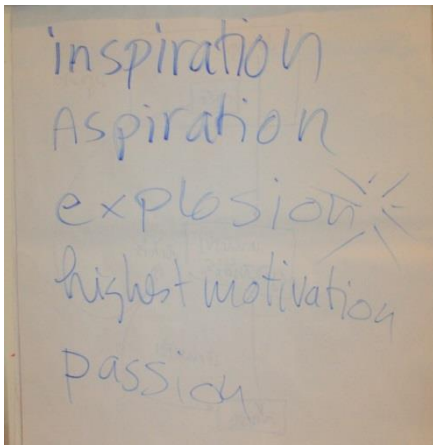 inspiration
Aspiration
explosion
highest motivation
passion